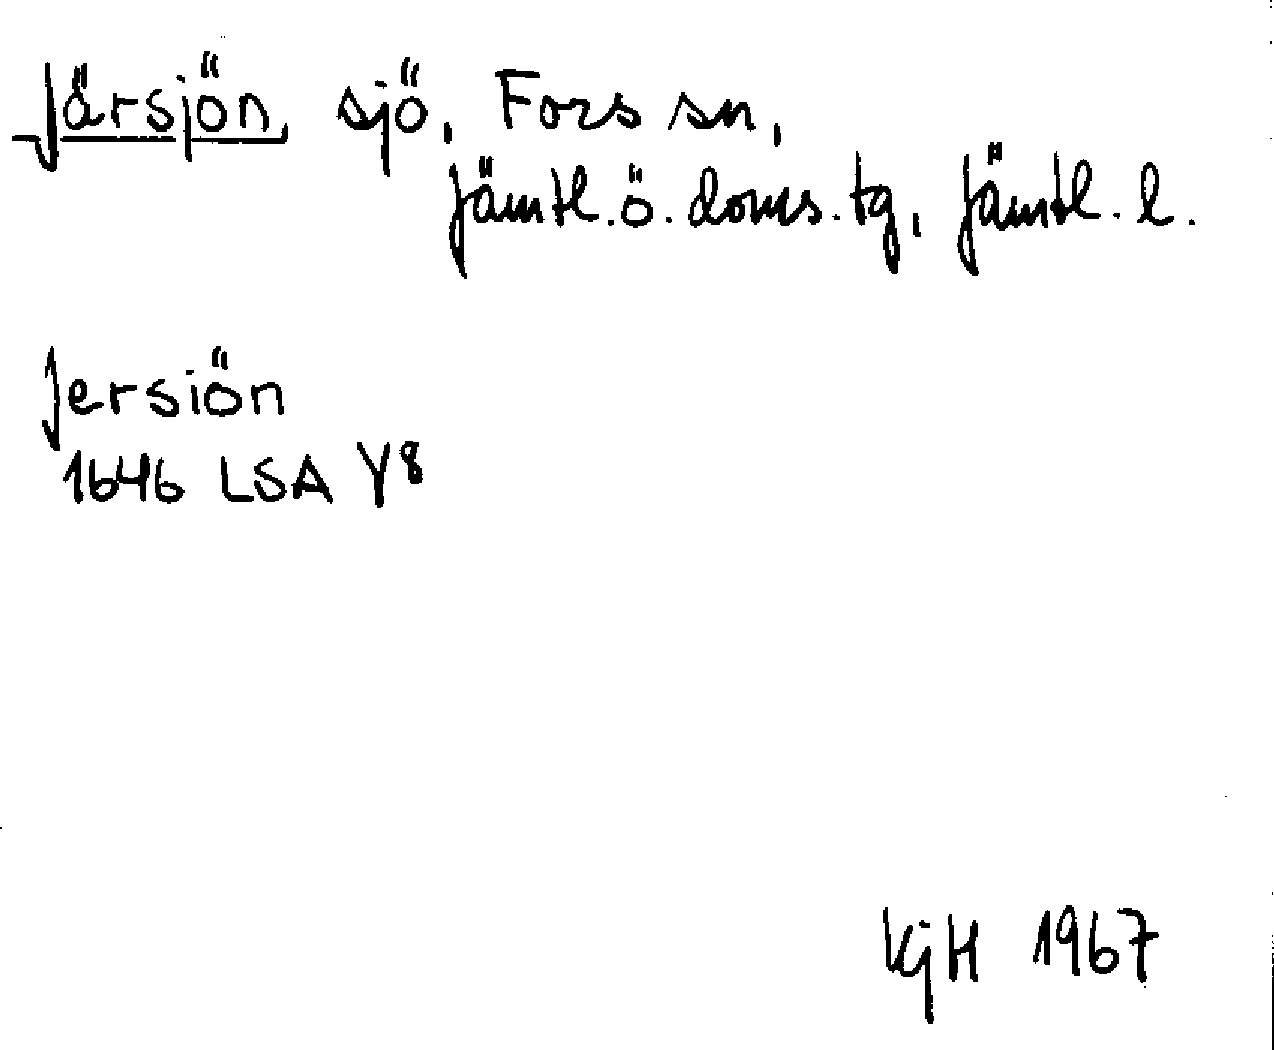 Järsjön, sjö, Fors sn,
Jämtl. ö. doms. tg, Jämtl. l.
Jersiön
1646 LSA Y8
KjH 1967